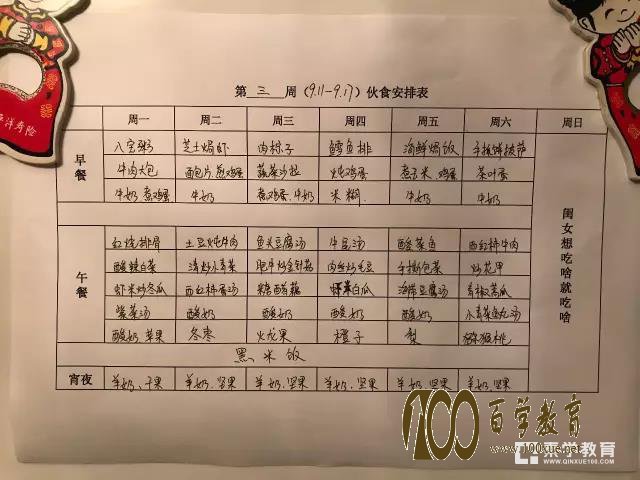 第 三 周（9.11-9.17）伙食安排表
周一 周二 周三 周四 周五 周六 周日
早餐
八宝粥 芝士焗虾 肉粽子 鳕鱼排 海鲜焗饭 手抓饼披萨
牛肉大包 面包片,煎鸡蛋 蔬菜沙拉 炖鸡蛋 煮玉米,鸡蛋 茶叶蛋
牛奶,煮鸡蛋 牛奶 煮鸡蛋,牛奶 米糊. 牛奶 牛奶
午餐
红烧排骨 土豆炖牛肉 鱼头豆腐汤 牛尾汤 酸菜鱼 西红柿牛肉
酸辣白菜 清炒小青菜 肥牛炒金针菇 肉丝炒毛豆 手撕包菜 炒花甲
虾米炒冬瓜 西红柿蛋汤 糖醋藕 虾米白瓜 海鲜豆腐汤 青椒苦瓜
紫菜汤 酸奶 酸奶 酸奶 酸奶 小青菜鱼丸汤
酸奶 苹果 冬枣 火龙果 橙子 梨 猕猴桃
黑米饭
宵夜 羊奶、干果 羊奶,坚果 羊奶,坚果 羊奶,坚果 羊奶,坚果 羊奶,坚果
闺女想吃啥就吃啥
洋寿险
100百学教育
www.100xue.net
秦学教育
WWW.QINXUE100.COM